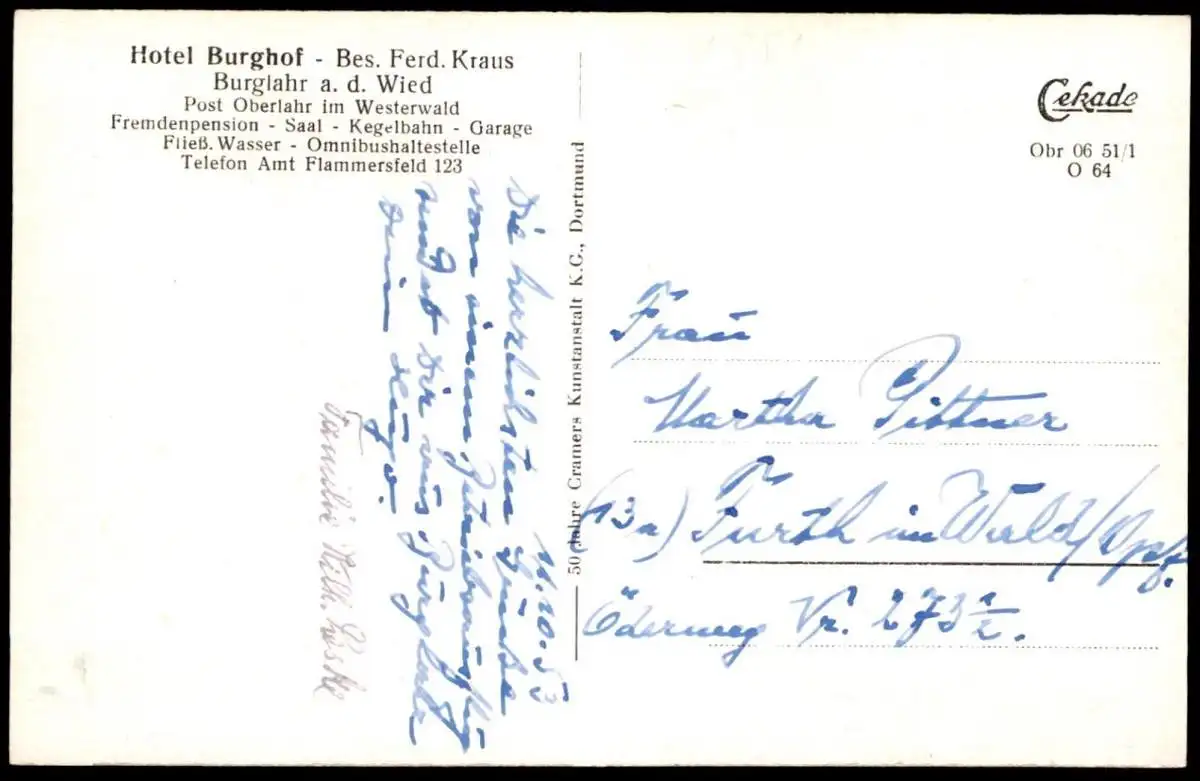 Hotel Burghof - Bes. Ferd. Kraus
Burglahr a. d. Wied
Post Oberlahr im Westerwald
Fremdenpension - Saal - Kegelbahn - Garage
Fließ. Wasser - Omnibushaltestelle
Telefon Amt Flammersfeld 123
11.10.53
Die herzlichsten Grüße
von einem
sendet Dir aus Burglahr
Dein Hugo.
Familie Wilh.
50 Jahre Cramers Kunstanstalt K.G., Dortmund
Cekade
Obr 06 51/1
O 64
Frau
Martha Pittner
(13a) Furth im Wald/Opf.
Öderweg Nr. 273 1/2.